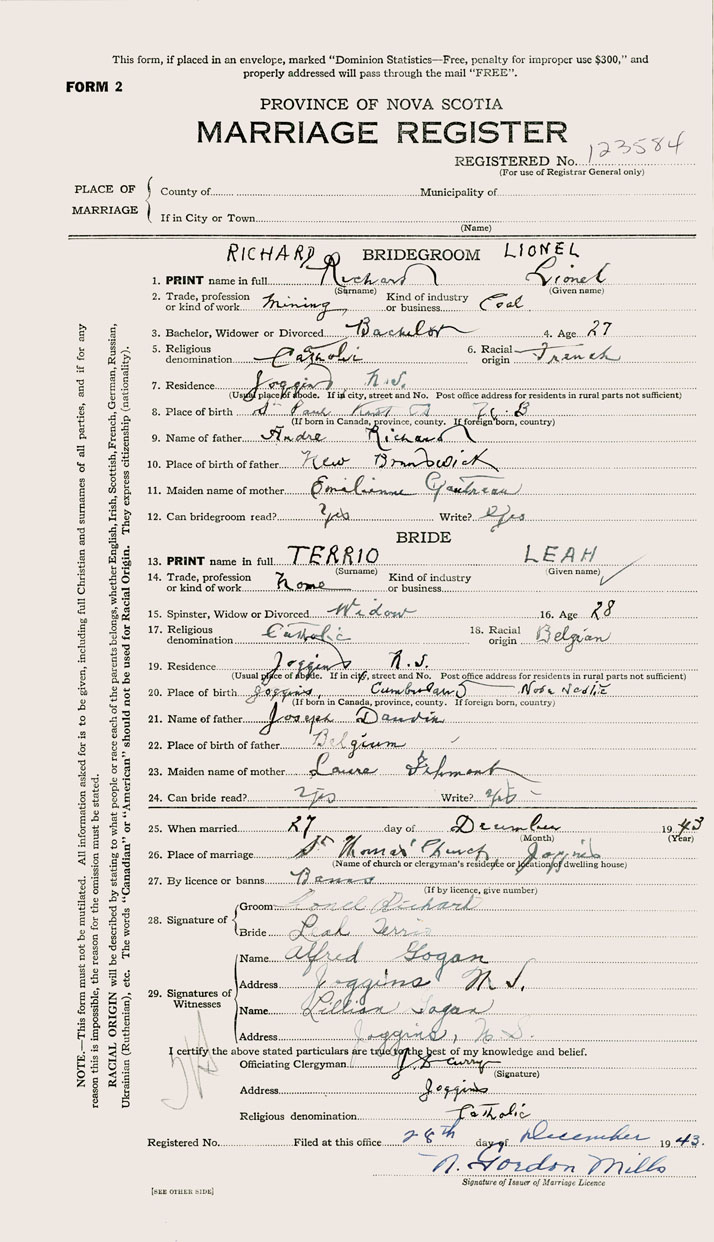 This form, if placed in an envelope, marked "Dominion Statistics—Free, penalty for improper use $300," and
properly addressed will pass through the mail "FREE".
FORM 2
PROVINCE OF NOVA SCOTIA
MARRIAGE REGISTER
REGISTERED No. 123584
(For use of Registrar General only)
PLACE OF MARRIAGE
County of Municipality of
If in City or Town
(Name)
RICHARD BRIDEGROOM LIONEL
1. PRINT name in full Richard Lionel
(Surname) (Given name)
2. Trade, profession or kind of work Mining Kind of industry or business Coal
3. Bachelor, Widower or Divorced Bachelor 4. Age 27
5. Religious denomination Catholic 6. Racial origin French
7. Residence Joggins N.S.
(Usual place of abode. If in city, street and No. Post office address for residents in rural parts not sufficient)
8. Place of birth St Paul Kent Co N.B
(If born in Canada, province, county. If foreign born, country)
9. Name of father Andre Richard
10. Place of birth of father New Brunswick
11. Maiden name of mother Emilienne Gautreau
12. Can bridegroom read? Yes Write? Yes
BRIDE
13. PRINT name in full TERRIO LEAH
(Surname) (Given name)
14. Trade, profession or kind of work None Kind of industry or business
15. Spinster, Widow or Divorced Widow 16. Age 28
17. Religious denomination Catholic 18. Racial origin Belgian
19. Residence Joggins N.S.
(Usual place of abode. If in city, street and No. Post office address for residents in rural parts not sufficient)
20. Place of birth Joggins, Cumberland Nova Scotia
(If born in Canada, province, county. If foreign born, country)
21. Name of father Joseph Dandin
22. Place of birth of father Belgium
23. Maiden name of mother Laure
24. Can bride read? Yes Write? Yes
25. When married 27 day of December 1943
(Month) (Year)
26. Place of marriage St Thomas' Church, Joggins
(Name of church or clergyman's residence or location of dwelling house)
27. By licence or banns Banns
(If by licence, give number)
28. Signature of
Groom Lionel Richard
Bride Leah Terrio
29. Signatures of Witnesses
Name Alfred Gogan
Address Joggins N.S.
Name Lillian Gogan
Address Joggins, N.S.
I certify the above stated particulars are true to the best of my knowledge and belief.
Officiating Clergyman J. D. Curry
(Signature)
Address Joggins
Religious denomination Catholic
Registered No. Filed at this office 28th day of December 1943.
N. Gordon Mills
Signature of Issuer of Marriage Licence
[SEE OTHER SIDE]
NOTE.—This form must not be mutilated. All information asked for is to be given, including full Christian and surnames of all parties, and if for any
reason this is impossible, the reason for the omission must be stated.
RACIAL ORIGIN will be described by stating to what people or race each of the parents belongs, whether English, Irish, Scottish, French, German, Russian,
Ukrainian (Ruthenian), etc. The words "Canadian" or "American" should not be used for Racial Origin. They express citizenship (nationality).